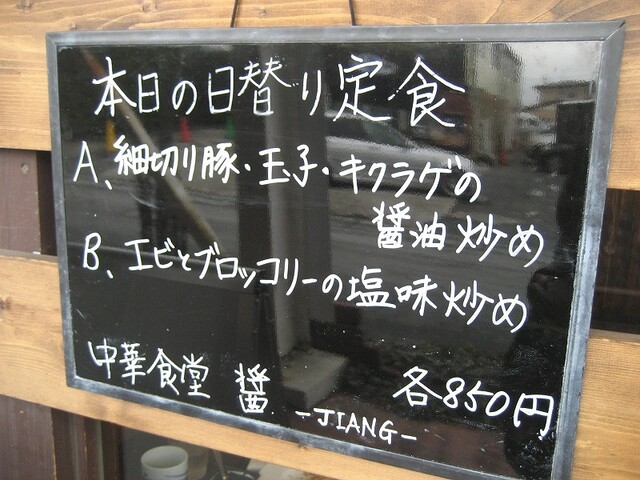 本日の日替り定食
A、細切り豚・玉子・キクラゲの
醤油炒め
B、エビとブロッコリーの塩味炒め
中華食堂 醤 -JIANG-
各850円